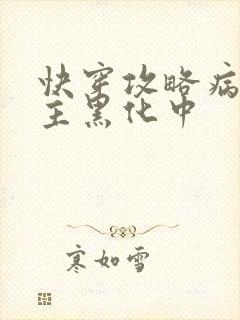 快穿攻略病
主黑化中
寒如雪